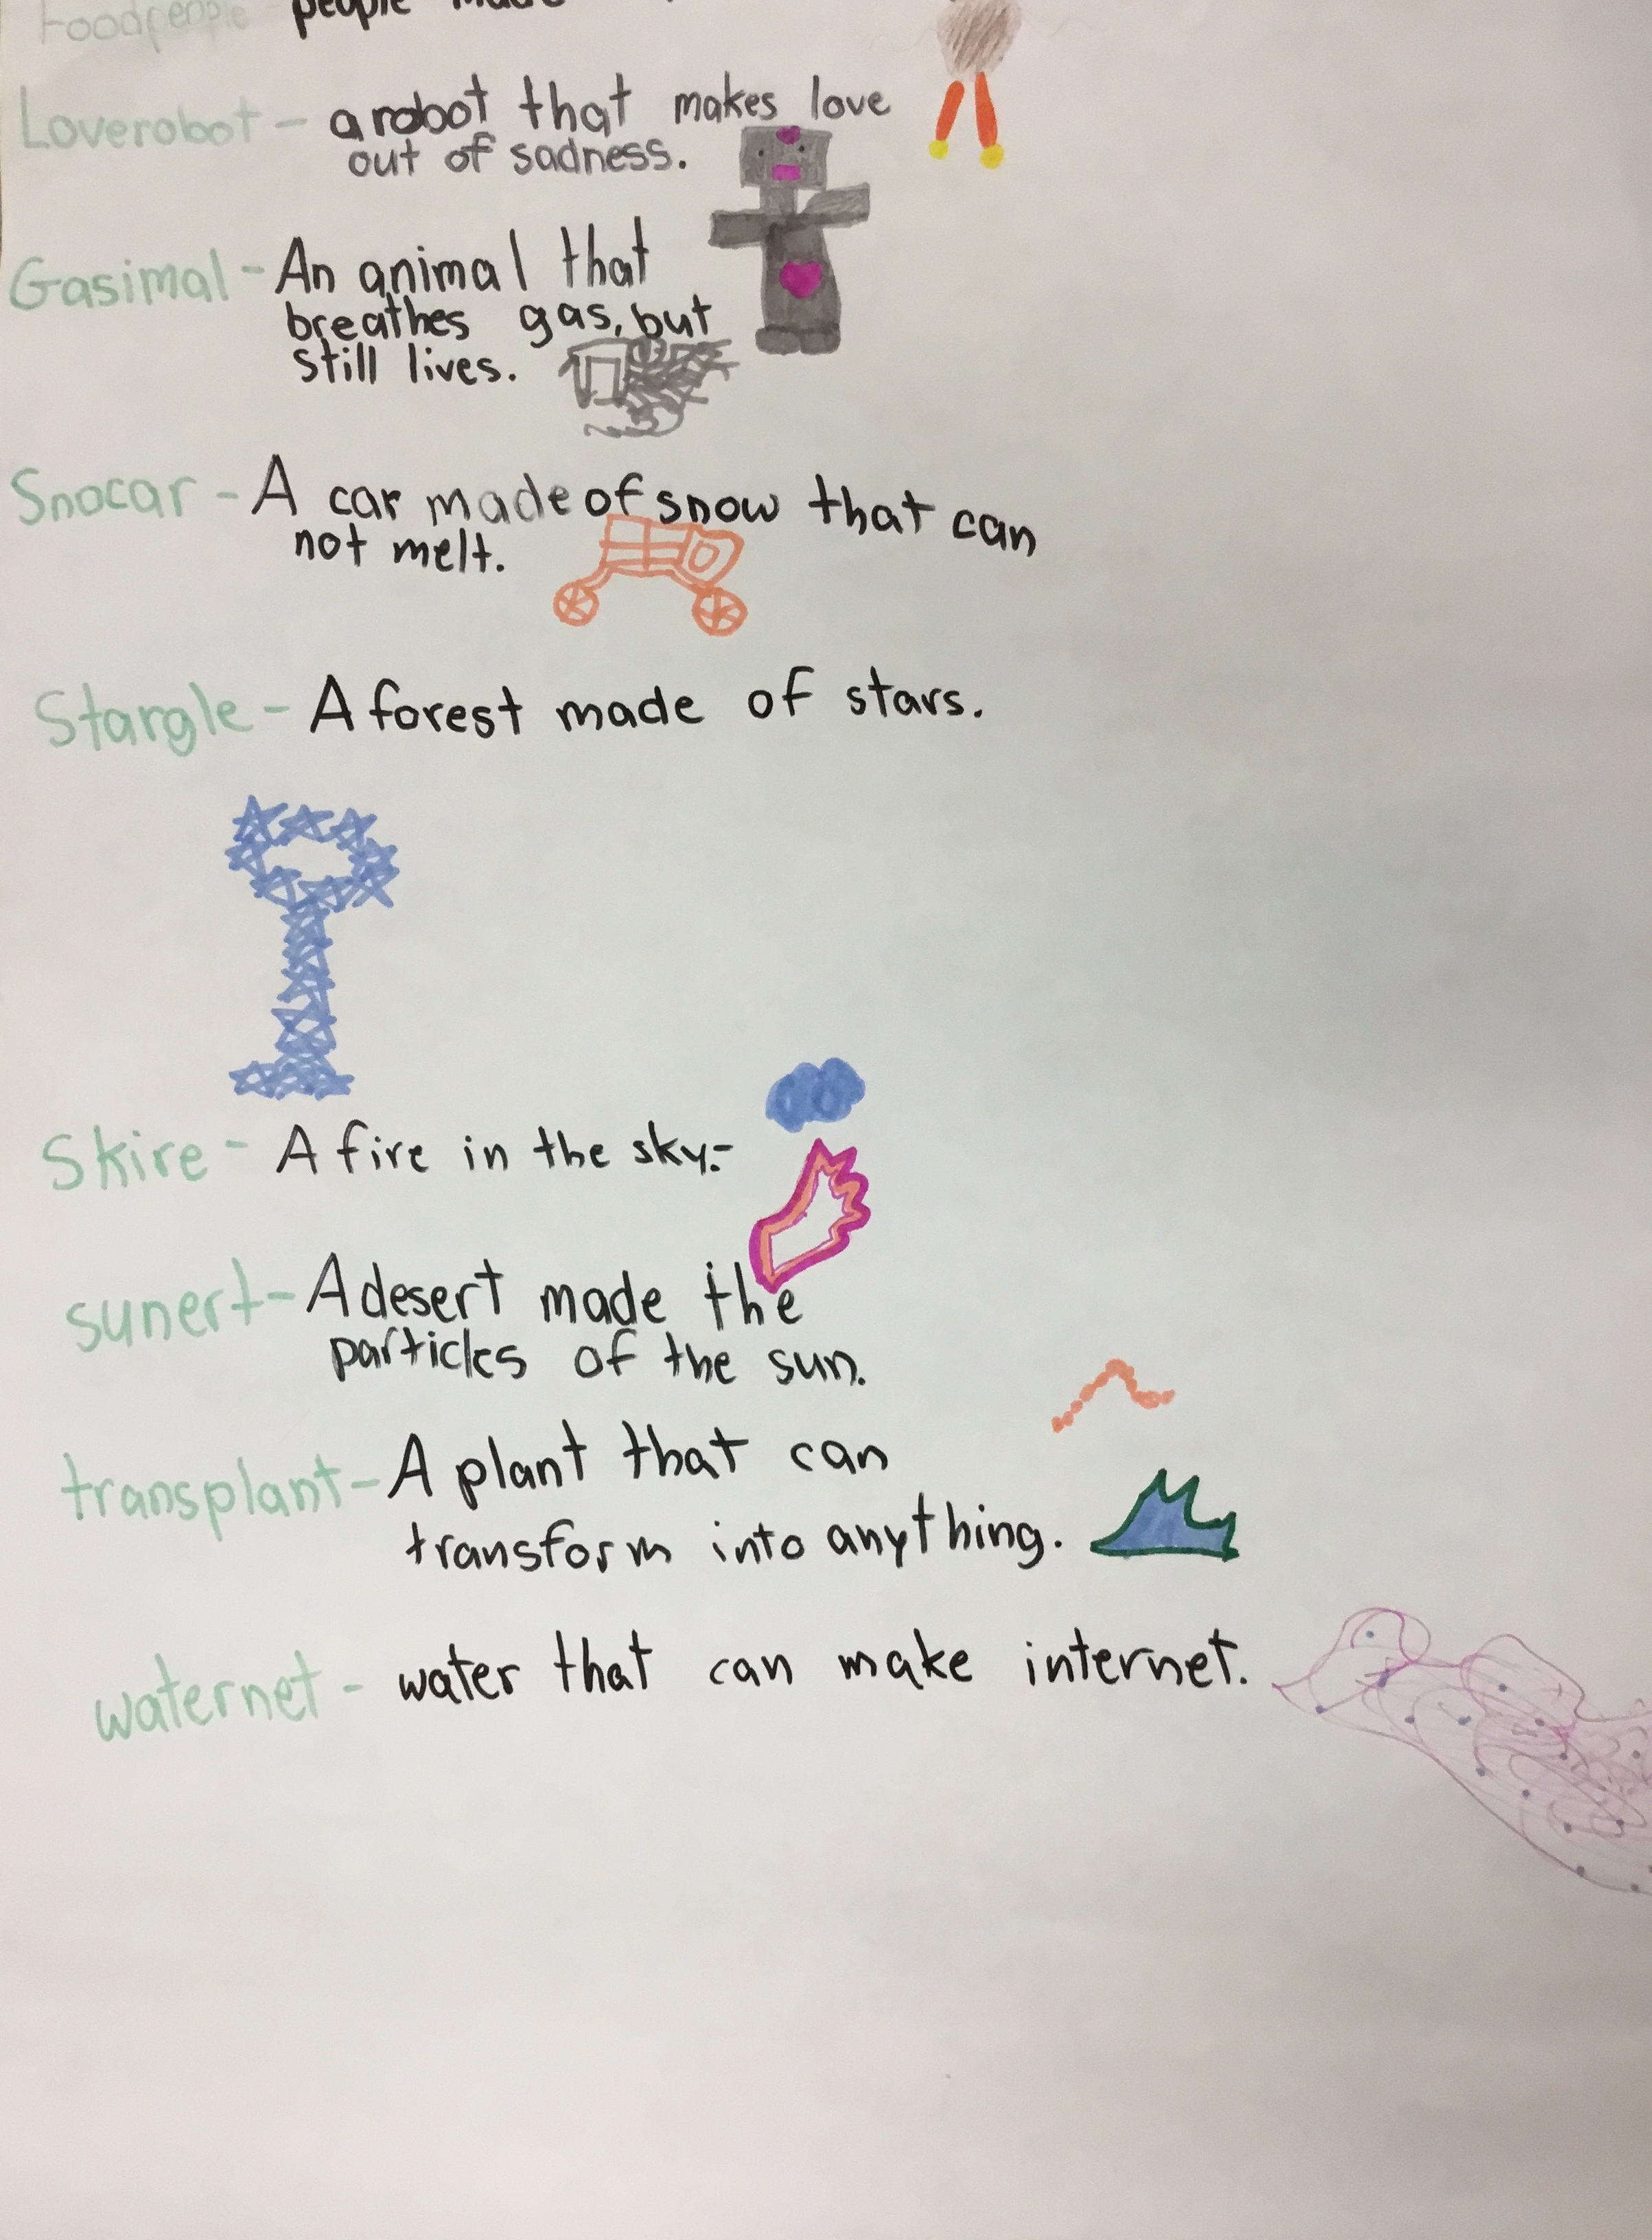 Foodpeople - people made
Loverobot - a robot that makes love
out of sadness.
Gasimal - An animal that
breathes gas, but
still lives.
Snocar - A car made of snow that can
not melt.
Stargle - A forest made of stars.
Skire - A fire in the sky.-
sunert - A desert made the
particles of the sun.
transplant - A plant that can
transform into anything.
waternet - water that can make internet.